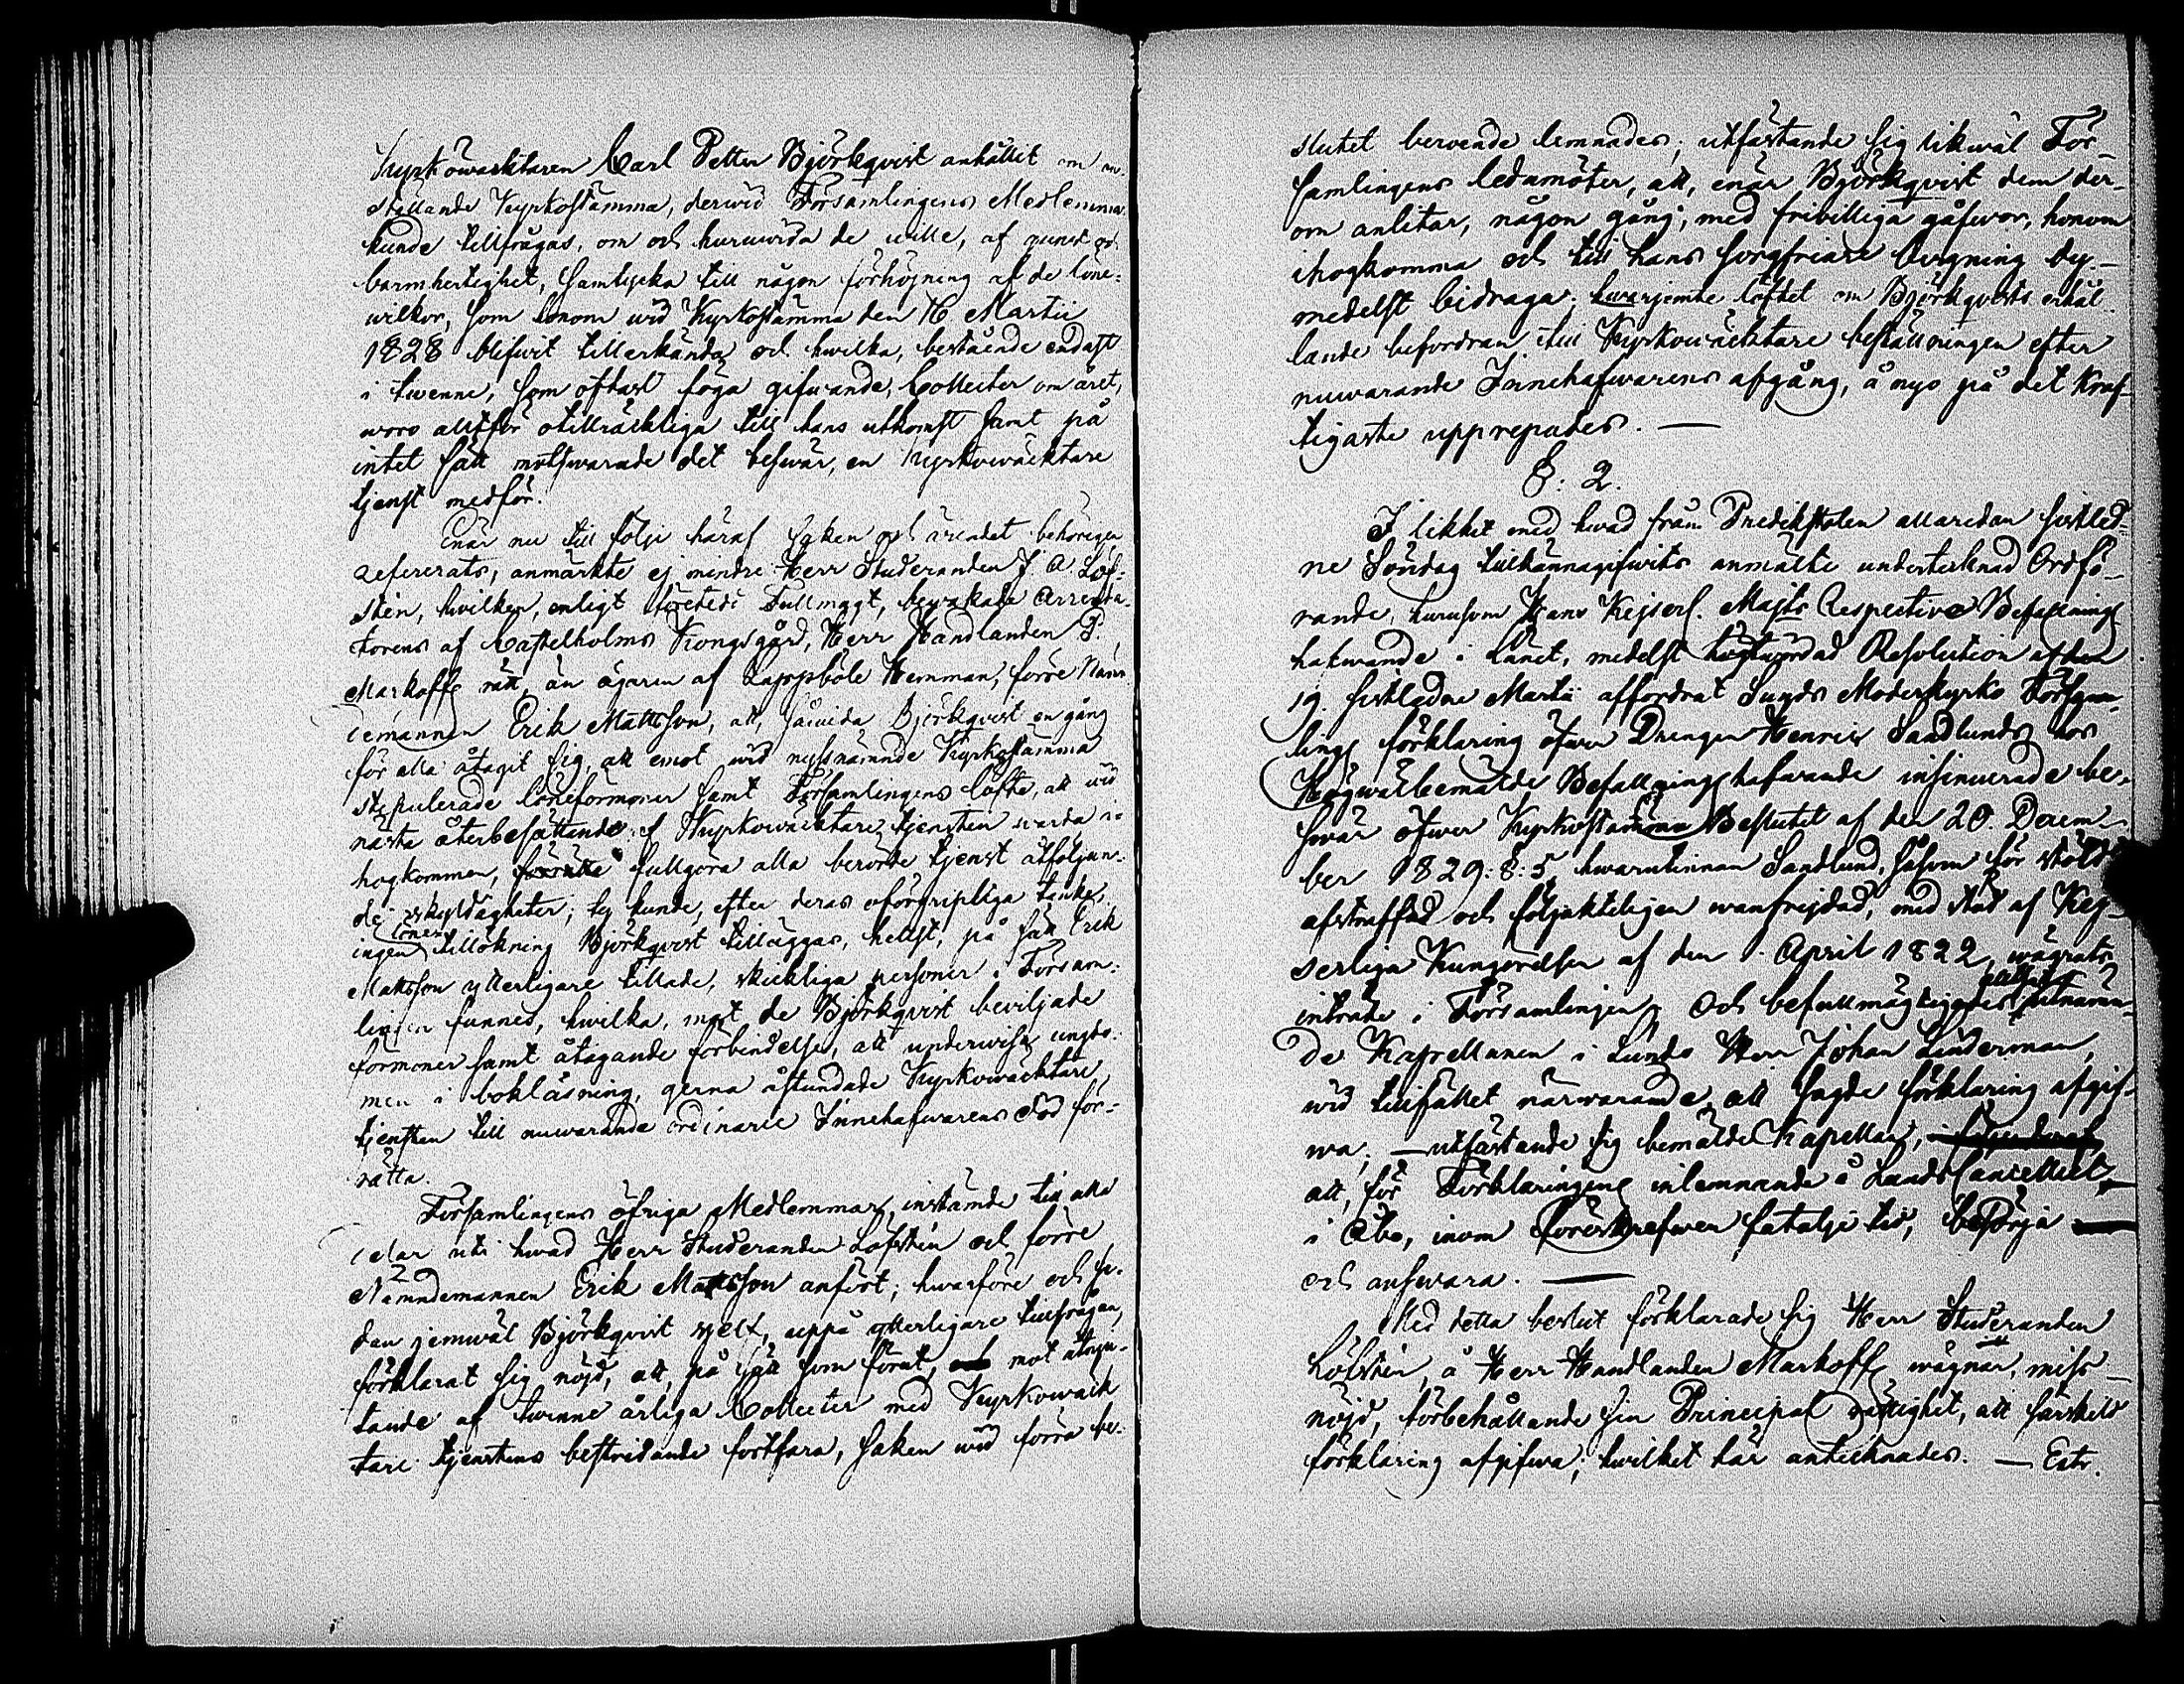 Kyrkowäcktaren Carl Petter Björkqvist anhållit om an-
ställande Kyrkostämma, derwid Församlingens Medlemmar
kunde tillfrågas, om och huruwida de wille, af gunst och
barmhertighet, samtycka till någon förhöjning af de löne-
wilkor, som honom wid Kyrkostämma den 16 Martii
1828 blifwit tillerkända och hwilka, bestående endast
i twenne, som oftast föga gifwande, Collecter om året,
woro alltför otillräckliga till hans utkomst samt på
intet sätt motswarade det beswär, en Kyrkowäcktare
tjenst medför.
Enär nu till följe häraf saken och ärendet behörigen
refererats, anmärkte ej mindre Herr Studeranden J. A. Löf-
stén, hwilken, enligt företedt Fullmagt, bewakade Arrenda-
torens af Castelholms Kongsgård, Herr Handlanden P.
Markoffs rätt, än ägaren af Lappböle Hemman, förre Näm-
demannen Erik Mattsson, att, såwida Björkqvist en gång
för alla åtagit sig, att emot wid nyssnämnde Kyrkostämma
stipulerade löneförmoner samt Församlingens löfte, att wid
nästa återbesättande af Kyrkowäcktare tjensten warda i-
hogkommen, förrätta fullgöra alla berörde tjenst åtföljan-
de skyldigheter; ty kunde, efter deras oförgripliga tanke,
löne
ingen tillökning Björkqvist tilläggas, helst, på sätt Erik
Mattsson ytterligare tillade, skickliga personer i Försam-
lingen funnes, hwilka, mot de Björkqvist beviljade
förmoner samt åtagande förbindelse, att underwisa ungdo-
men i bokläsning, gerna åstundade Kyrkowäcktare
tjensten till nuwarande ordinarie Innehafwarens död för-
rätta.
Församlingens öfriga Medlemmar instämde till alla
delar uti hwad Herr Studeranden Löfstén och förre
Nämndemannen Erik Mattsson anfört; hwarföre och se-
dan jemwäl Björkqvist sjelf, uppå ytterligare tillfrågan,
förklarat sig nöjd, att, på sätt som förut, mot åtnju-
tande af twenne årliga Collecter med Kyrkowäck
tare tjenstens bestridande fortfara, saken wid förra be-
slutet beroende lemnades; utfästande sig likwäl För-
samlingens ledamöter, att, enär Björkqvist dem der-
om anlitar, någon gång, med frivilliga gåfwor, honom
ihogkomma och till hans sorgfriare bergning dy-
medelst bidraga; hwarjemte löftet om Björkqvists erhål
lande befordran till Kyrkowäcktare beställningen efter
nuwarande Innehafwarens afgång, å nyo på det kraf-
tigaste upprepades. —
§. 2.
I likhet med hwad från Predikstolen allaredan sistled-
ne Söndag tillkännagifwits anmälte undertecknad Ordfö-
rande, hurusom Hans Kejserl. Majts Respective Befallnings
hafwande i länet, medelst Resolution af den
19. sistledne Martii affordrat Sunds Moderkyrko Försam-
lings förklaring öfwer Drengen Henric Sandlunds hos
Högwälbemälde Befallningshafwande insinuerade be-
swär öfwer Kyrkostämma Beslutet af den 20. Decem-
ber 1829. §. 5, hwarutinnan Sandlund, såsom för stöld
afstraffad och följakteligen wanfrejdad, med stöd af Kej-
serliga Kungörelsen af den . April 1822, wägrats
inträde i Församlingen; Och befullmägtigades
de Kapellanen i Lunds Herr Johan Linderman,
wid tillfället närwarande, att sagde förklaring afgif-
wa; — utfästande sig bemälde Kapellan,
att, för Förklaringens inlemnande å Lands Cancelliet
i Åbo, inom föreskrefwen fatalje tid, besörja
och answara. —
Med detta beslut förklarade sig Herr Studeranden
Löfstén, å Herr Handlanden Markoffs wägnar, miss-
nöjd, förbehållande sin Principal rättighet, att särskild
förklaring afgifwa; hwilket här antecknades. — Estr.